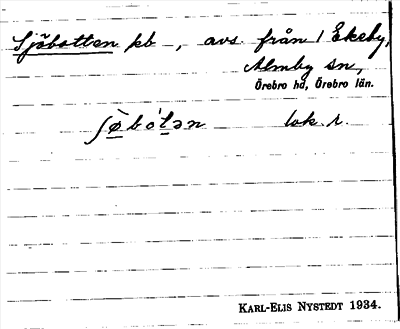 Sjöbotten pb -, avs. från 1 Ekeby,
Almby sn,
Örebro hd, Örebro län.
lok. r.
KARL-ELIS NYSTEDT 1934.